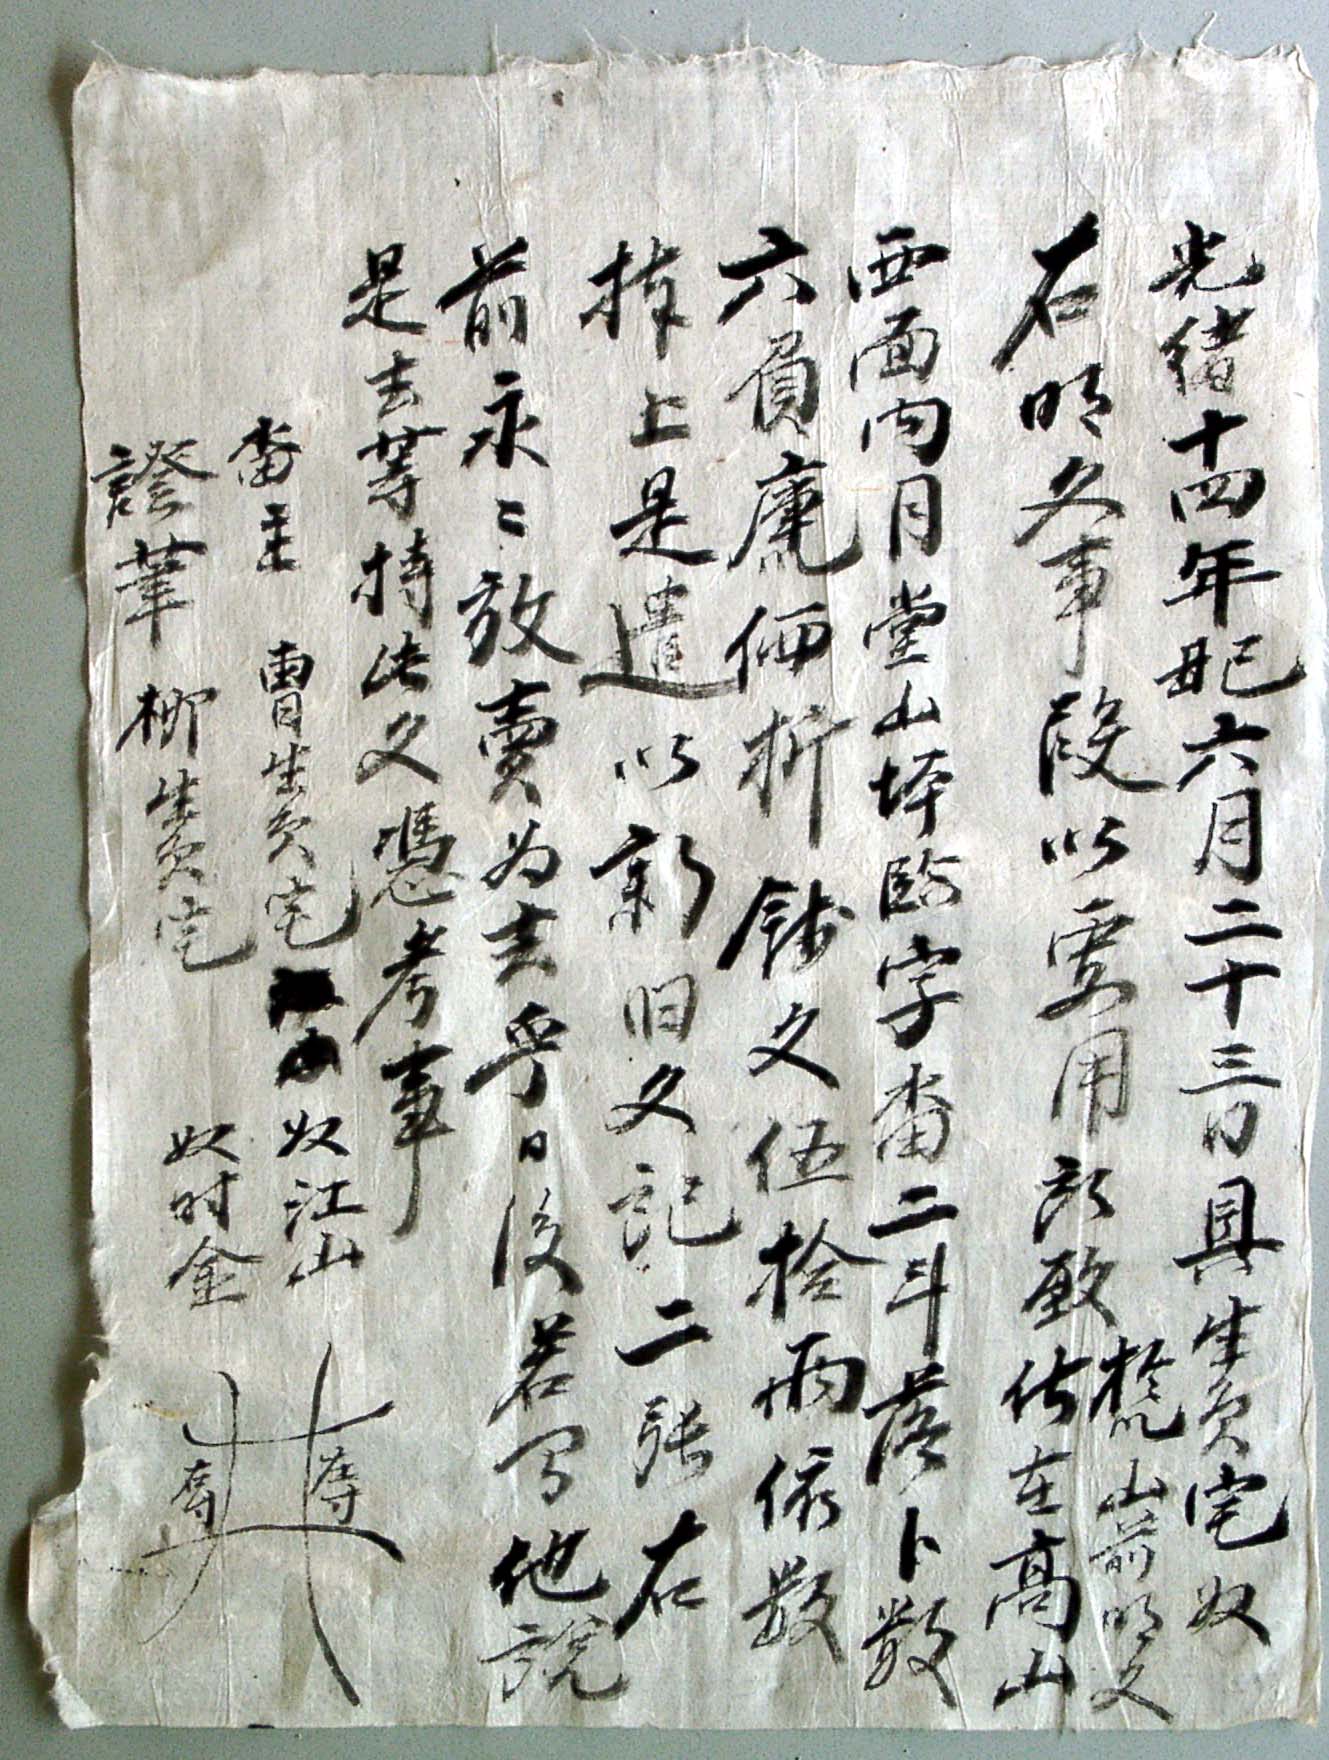 光緖十四年六月二十三日具生員宅奴
山前明文
右明文事段以要用所致伏在高山
西面內月堂山坪臨字畓二斗落卜數
六負庫価折錢文伍拾兩依數
捧上是遣以新旧文記二張右
前永〻放賣為去乎日後若有他說
是去等持此文憑考事
畓主 曺生員宅 奴江山 左寸
證筆 柳生員宅 奴时金 左寸